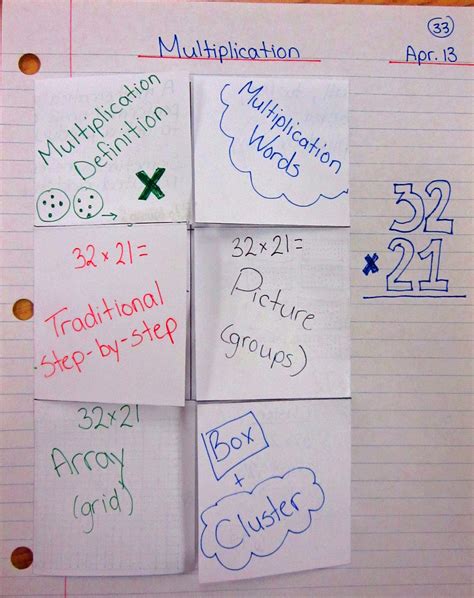 33
Multiplication
Apr. 13
Multiplication
Definition
x
Multiplication
Words
32
x 21
32 x 21 =
Traditional
step-by-step
32 x 21 =
Picture
(groups)
32 x 21
Array
(grid)
Box
+
Cluster